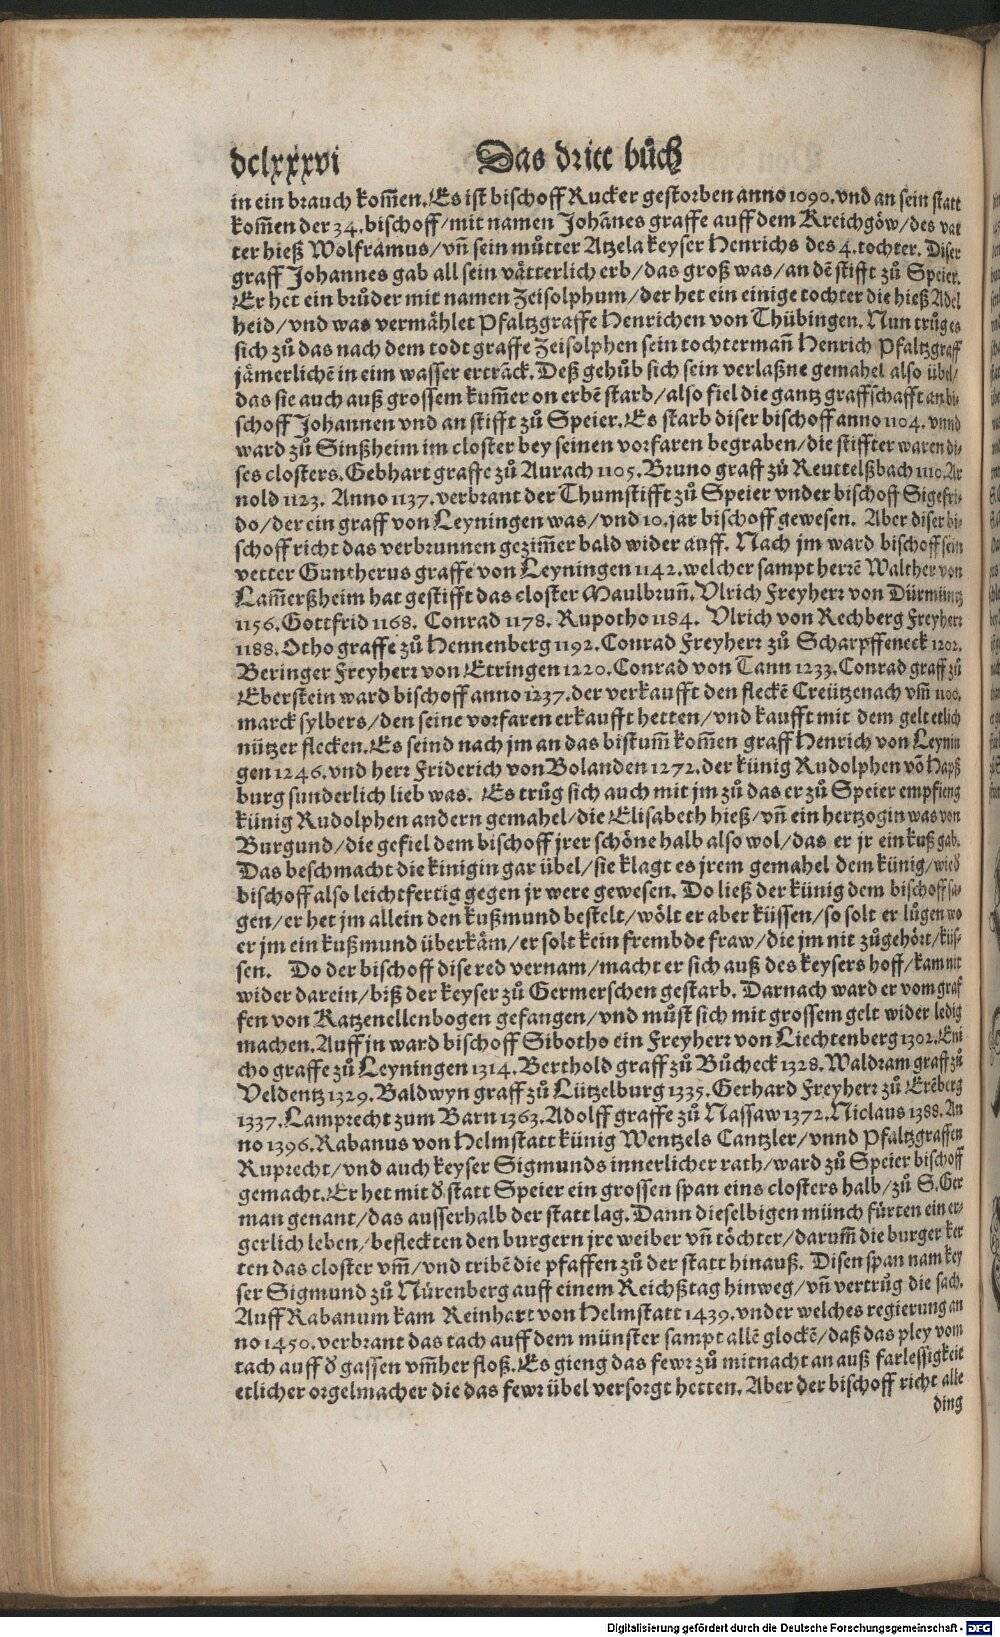 dclxxxvi Das dritt bůch
in ein brauch kom̃en. Es ist bischoff Rucker gestorben anno 1090. vnd an sein statt
kom̃en der 34. bischoff/ mit namen Johan̄es graffe auff dem Kreichgöw/ des vat
ter hieß Wolframus/ vñ sein můtter Atzela keyser Henrichs des 4. tochter. Diser
graff Johannes gab all sein vätterlich erb/ das groß was/ an dē stifft zů Speier.
Er het ein brůder mit namen Zeisolphum/ der het ein einige tochter die hieß Adel
heid/ vnd was vermählet Pfaltzgraffe Henrichen von Thübingen. Nun trůg es
sich zů das nach dem todt graffe Zeisolphen sein tochterman̄ Henrich Pfaltzgraff
jämerlichē in eim wasser ertranck. Deß gehůb sich sein verlaßne gemahel also übel/
das sie auch auß grossem kum̃er on erbē starb/ also fiel die gantz graffschafft an bi-
schoff Johannen vnd an stifft zů Speier. Es starb diser bischoff anno 1104. vnnd
ward zů Sinßheim im closter bey seinen vorfaren begraben/ die stiffter waren di-
ses closters. Gebhart graffe zů Aurach 1105. Bruno graff zů Reuttelßbach 1110. Ar
nold 1123. Anno 1137. verbrant der Thumstifft zů Speier vnder bischoff Sigefri-
do/ der ein graff von Leyningen was/ vnd 10. jar bischoff gewesen. Aber diser bi-
schoff richt das verbrunnen gezim̃er bald wider auff. Nach jm ward bischoff sein
vetter Guntherus graffe von Leyningen 1142. welcher sampt herrē Walther von
Lam̃erßheim hat gestifft das closter Maulbrun̄. Vlrich Freyherr von Dürmüntz
1156. Gottfrid 1168. Conrad 1178. Rupotho 1184. Vlrich von Rechberg Freyherr
1188. Otho graffe zů Hennenberg 1192. Conrad Freyherr zů Scharpffeneck 1202.
Beringer Freyherr von Etringen 1220. Conrad von Tann 1233. Conrad graff zů
Eberstein ward bischoff anno 1237. der verkaufft den fleckē Creützenach vm̃ 1100.
marck sylbers/ den seine vorfaren erkaufft hetten/ vnd kaufft mit dem gelt etlich
nützer flecken. Es seind nach jm an das bistum̃ kom̃en graff Henrich von Leynin
gen 1246. vnd herr Friderich von Bolanden 1272. der künig Rudolphen vō Hapß
burg sunderlich lieb was. Es trůg sich auch mit jm zů das er zů Speier empfieng
künig Rudolphen andern gemahel/ die Elisabeth hieß/ vñ ein hertzogin was von
Burgund/ die gefiel dem bischoff jrer schöne halb also wol/ das er jr ein kuß gab.
Das beschmacht die kinigin gar übel/ sie klagt es jrem gemahel dem künig/ wie ð
bischoff also leichtfertig gegen jr were gewesen. Do ließ der künig dem bischoff sa-
gen/ er het jm allein den kußmund bestelt/ wölt er aber küssen/ so solt er lůgen wo
er jm ein kußmund überkäm/ er solt kein frembde fraw/ die jm nit zůgehört/ küs-
sen. Do der bischoff dise red vernam/ macht er sich auß des keysers hoff/ kam nit
wider darein/ biß der keyser zů Germerschen gestarb. Darnach ward er vom graf
fen von Katzenellenbogen gefangen/ vnd můst sich mit grossem gelt wider ledig
machen. Auff jn ward bischoff Sibotho ein Freyherr von Liechtenberg 1302. Emi
cho graffe zů Leyningen 1314. Berthold graff zů Bůcheck 1328. Waldram graff zů
Veldentz 1329. Baldwyn graff zů Lützelburg 1335. Gerhard Freyherr zů Erēberg
1337. Lamprecht zum Barn 1363. Adolff graffe zů Nassaw 1372. Niclaus 1388. An
no 1396. Rabanus von Helmstatt künig Wentzels Cantzler/ vnnd Pfaltzgraffen
Ruprecht/ vnd auch keyser Sigmunds innerlicher rath/ ward zů Speier bischoff
gemacht. Er het mit ð statt Speier ein grossen span eins closters halb/ zů S. Ger
man genant/ das ausserhalb der statt lag. Dann dieselbigen münch fürten ein er-
gerlich leben/ befleckten den burgern jre weiber vñ töchter/ darum̃ die burger ker
ten das closter vm̃/ vnd tribē die pfaffen zů der statt hinauß. Disen span nam key
ser Sigmund zů Nürenberg auff einem Reichßtag hinweg/ vñ vertrůg die sach.
Auff Rabanum kam Reinhart von Helmstatt 1439. vnder welches regierung an
no 1450. verbrant das tach auff dem münster sampt allē glockē/ daß das pley vom
tach auff ð gassen vm̃her floß. Es gieng das fewr zů mitnacht an auß farlessigkeit
etlicher orgelmacher die das fewr übel versorgt hetten. Aber der bischoff richt alle
ding
Digitalisierung gefördert durch die Deutsche Forschungsgemeinschaft - DFG